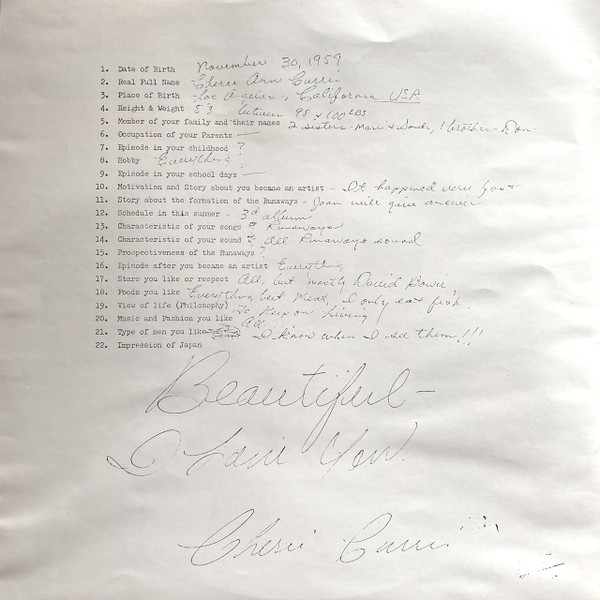 1. Date of Birth November 30, 1959
2. Real Full Name Cherie Ann Currie
3. Place of Birth Los Angeles, California USA
4. Height & Weight 5 3 between 98 & 100 LBS
5. Member of your family and their names 2 sisters - Marie & Wendi, 1 brother - Don
6. Occupation of your Parents -
7. Episode in your childhood ?
8. Hobby Everything
9. Episode in your school days -
10. Motivation and Story about you became an artist - It happened very fast
11. Story about the formation of the Runaways - Joan will give answer
12. Schedule in this summer - 3rd album
13. Characteristic of your songs ? Runaways
14. Characteristic of your sound ? All Runaways sound
15. Prospectiveness of the Runaways ?
16. Episode after you became an artist Everything
17. Stars you like or respect All, but mostly David Bowie
18. Foods you like Everything but Meat, I only eat fish.
19. View of life (Philosophy) To Keep on living
20. Music and Fashion you like All
21. Type of men you like I know when I see them!!!
22. Impression of Japan
Beautiful -
I Love You.
Cherie Currie